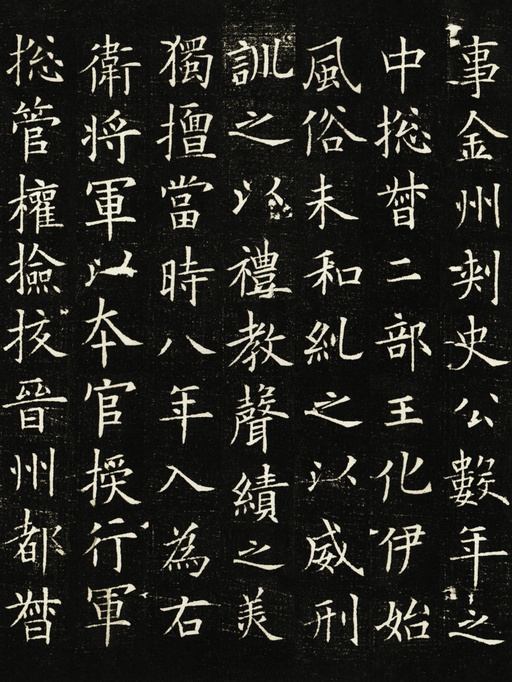 事金州刾史公數年之
中揔督二部王化伊始
風俗未和糺之以威刑
訓之以禮教聲績之美
獨擅當時八年入為右
衛將軍以本官授行軍
揔管權撿挍晉州都督